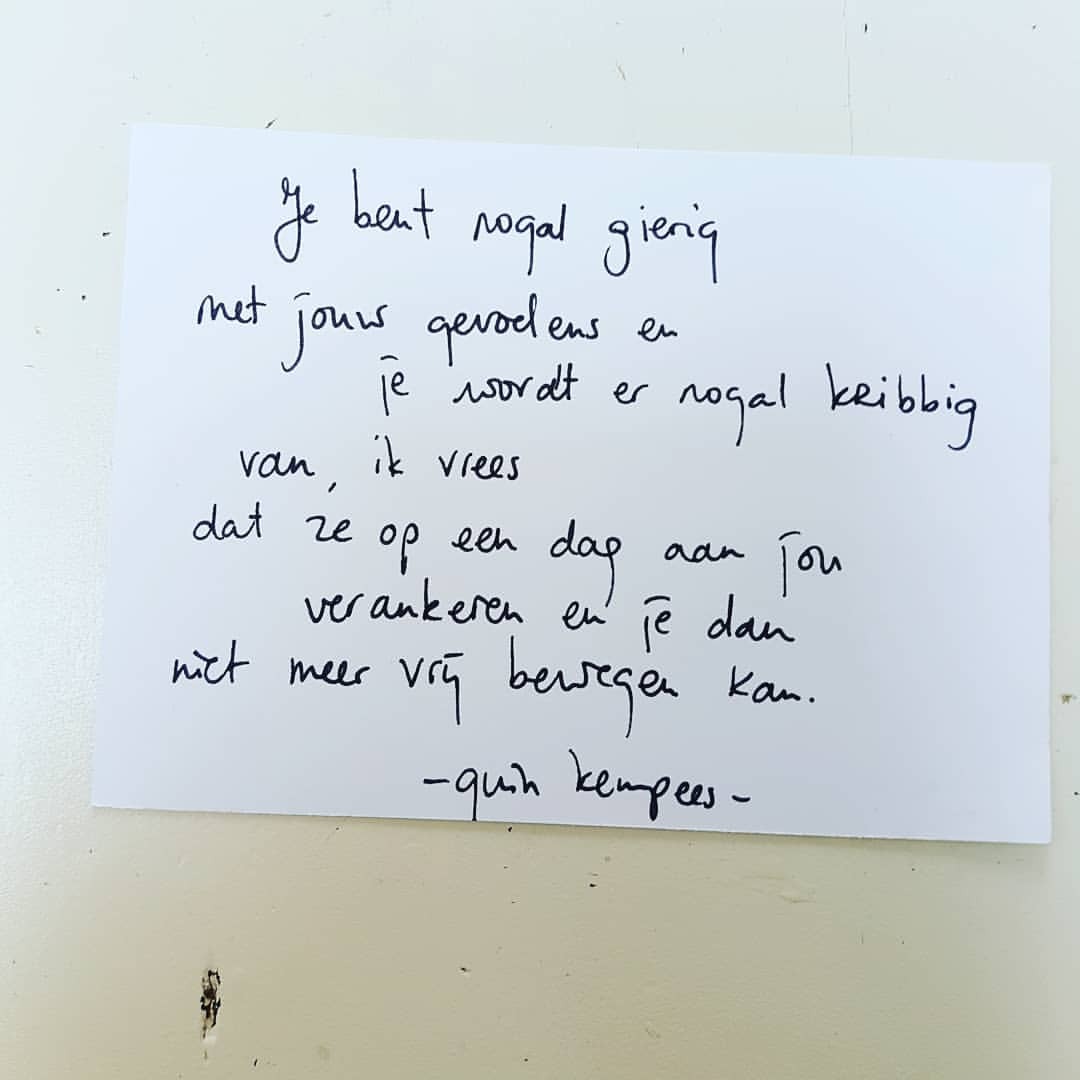 Je bent nogal gierig
met jouw gevoelens en
je wordt er nogal kribbig
van, ik vrees
dat ze op een dag aan jou
verankeren en je dan
niet meer vrij bewegen kan.
-quin kempees-